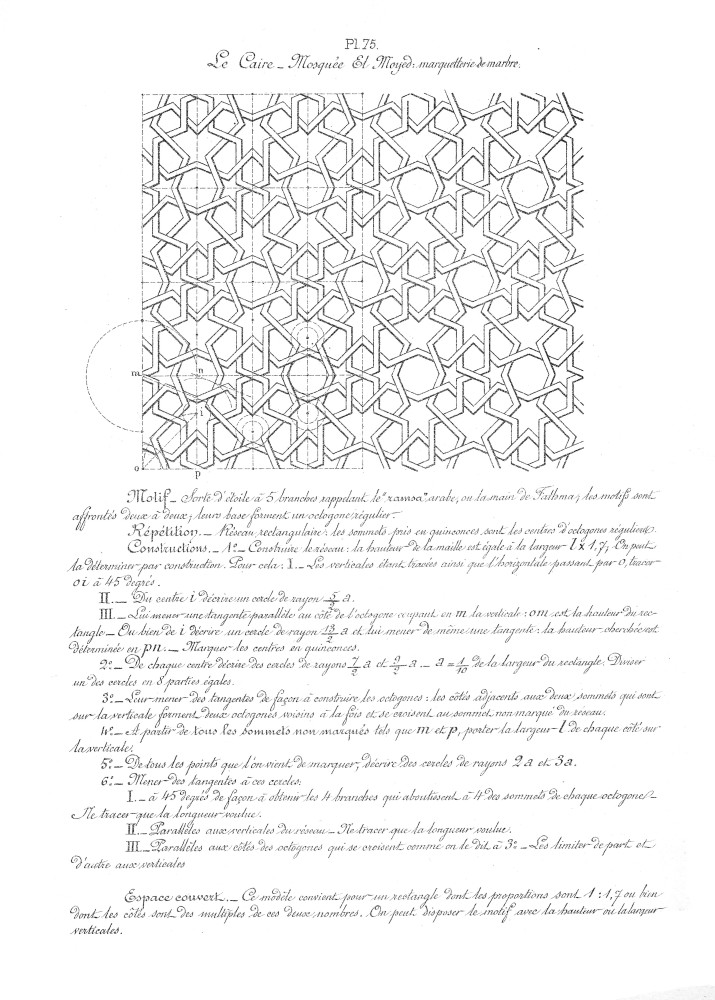 Pl. 75.
Le Caire _ Mosquée El Moyed: marquetterie de marbre.
m
n
i
o
p
Motif _ Sorte d'étoile à 5 branches rappelant le "ramsa" arabe, ou la main de Fathma; les motifs sont
affrontés deux à deux; leurs base forment un octogone régulier.
Répétition. _ Réseau rectangulaire: les sommets pris en quinconces, sont les centres d'octogones réguliers.
Constructions. _ 1º _ Construire le réseau: la hauteur de la maille est égale à la largeur l x 1,7; On peut
la déterminer par construction. Pour cela: I. _ Les verticales étant tracées ainsi que l'horizontale passant par o, tracer
oi à 45 degrés.
II. _ Du centre i décrire un cercle de rayon 5/2 a.
III. _ Lui mener une tangente parallèle au côté de l'octogone coupant en m la verticale: om est la hauteur du rec-
tangle _ Ou bien de i décrire un cercle de rayon 13/2 a et lui mener de même une tangente: la hauteur cherchée est
déterminée en pn: _ Marquer les centres en quinconces.
2º _ De chaque centre décrire des cercles de rayons 7/2 a et 9/2 a. _ a = 1/10 de la largeur du rectangle. Diviser
un des cercles en 8 parties égales.
3º _ Leur mener des tangentes de façon à construire les octogones: les côtés adjacents aux deux sommets qui sont
sur la verticale forment deux octogones voisins à la fois et se croisent au sommet non marqué du réseau.
4º _ A partir de tous les sommets non marqués tels que m et p, porter la largeur l de chaque côté sur
la verticale.
5º _ De tous les points que l'on vient de marquer, décrire des cercles de rayons 2a et 3a.
6º _ Mener des tangentes à ces cercles:
I. _ à 45 degrés de façon à obtenir les 4 branches qui aboutissent à 4 des sommets de chaque octogone _
Ne tracer que la longueur voulue.
II. _ Parallèles aux verticales du réseau _ Ne tracer que la longueur voulue.
III. _ Parallèles aux côtés des octogones qui se croisent comme on le dit à 3º _ Les limiter de part et
d'autre aux verticales
Espace couvert. _ Ce modèle convient pour un rectangle dont les proportions sont 1 : 1,7 ou bien
dont les côtés sont des multiples de ces deux nombres. On peut disposer le motif avec la hauteur ou la largeur
verticales.